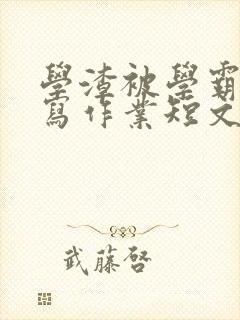 學渣被學霸
寫作業短文
武藤啓